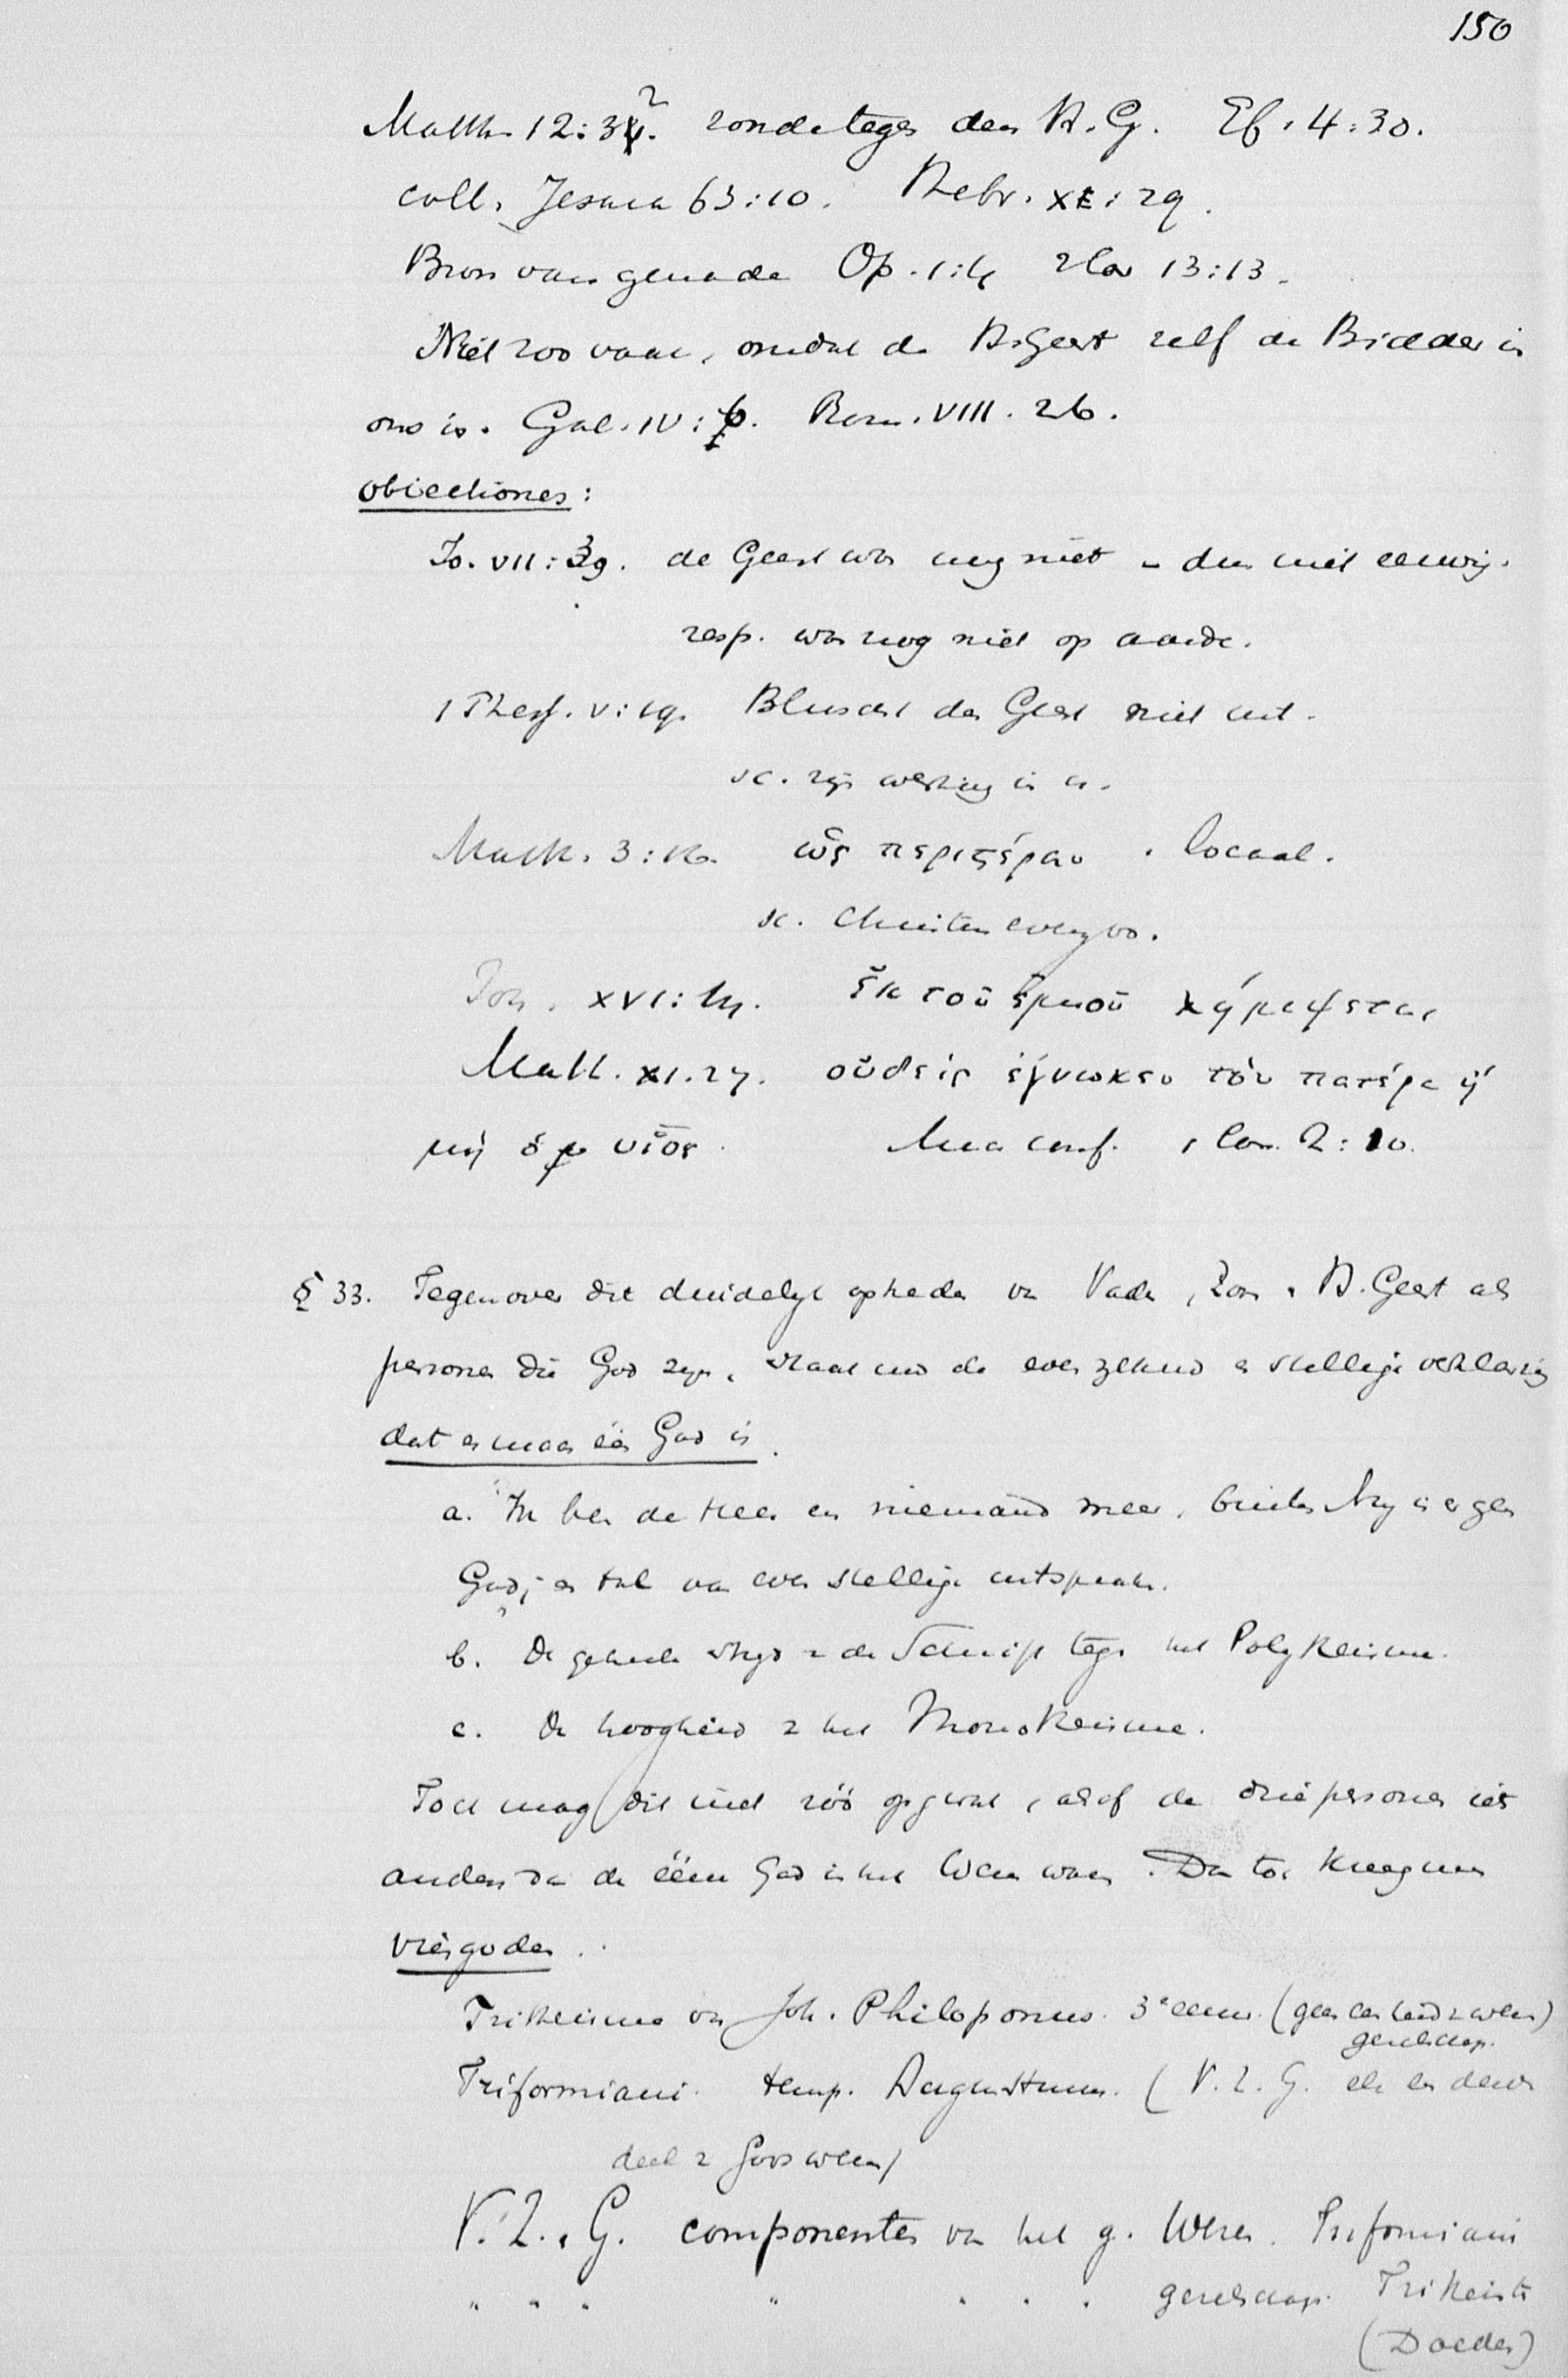 150
Matth. 12:32. zonde tegen den H. G. Ef. 4:30.
coll. Jesaia 63:10. Hebr. X: 29.
Bron van genade Op. 1:4 2 Cor 13:13.
Niet zoo vaak, omdat de H. Geest zelf de Bidder in
ons is. Gal. IV: 6. Rom. VIII. 26.
obiectiones:
Jo. VII: 39. de Geest was nog niet - dus niet eeuwig.
resp. was nog niet op aarde.
1 Thess. V: 19. Bluscht den Geest niet uit.
sc. zijn werking in u.
Matth. 3:16. ὡς περιστέραν . locaal.
sc.
Joh. XVI: 14. ἐκ τοῦ ἐμοῦ λήμψεται
Matt. XI. 27. οὐδεὶς ἔγνωκεν τὸν πατέρα ἢ
μὴ ὁ υἱός. Maar conf. 1 Cor. 2:10.
§ 33. Tegenover dit duidelijk optreden van Vader, Zoon & H. Geest als
personen die God zijn, staat nu de even zekere en stellige verklaring
dat er maar één God is.
a. "Ik ben de Heer en niemand meer, buiten Mij is er geen
God; en tal van even stellige uitspraken.
b. De geheele strijd v. de Schrift tegen het Polytheisme.
c. De hoogheid v. het Monotheisme.
Toch mag dit niet zóó opgevat, alsof de drie personen iets
anders dan de ééne God in het Wezen waren. Dan toch kreeg men
vier goden.
Tritheisme van Joh. Philoponus. 3e eeuw. (geen eenheid v. wezen)
genootschap.
Triformiani. temp. Augustinum. (V. Z. G. elk een derde
deel v. Gods wezen)
V. Z. & G. componenten van het g. Wezen. Triformiani
" " " " " " " genootschap. Tritheisten
(Doedes)